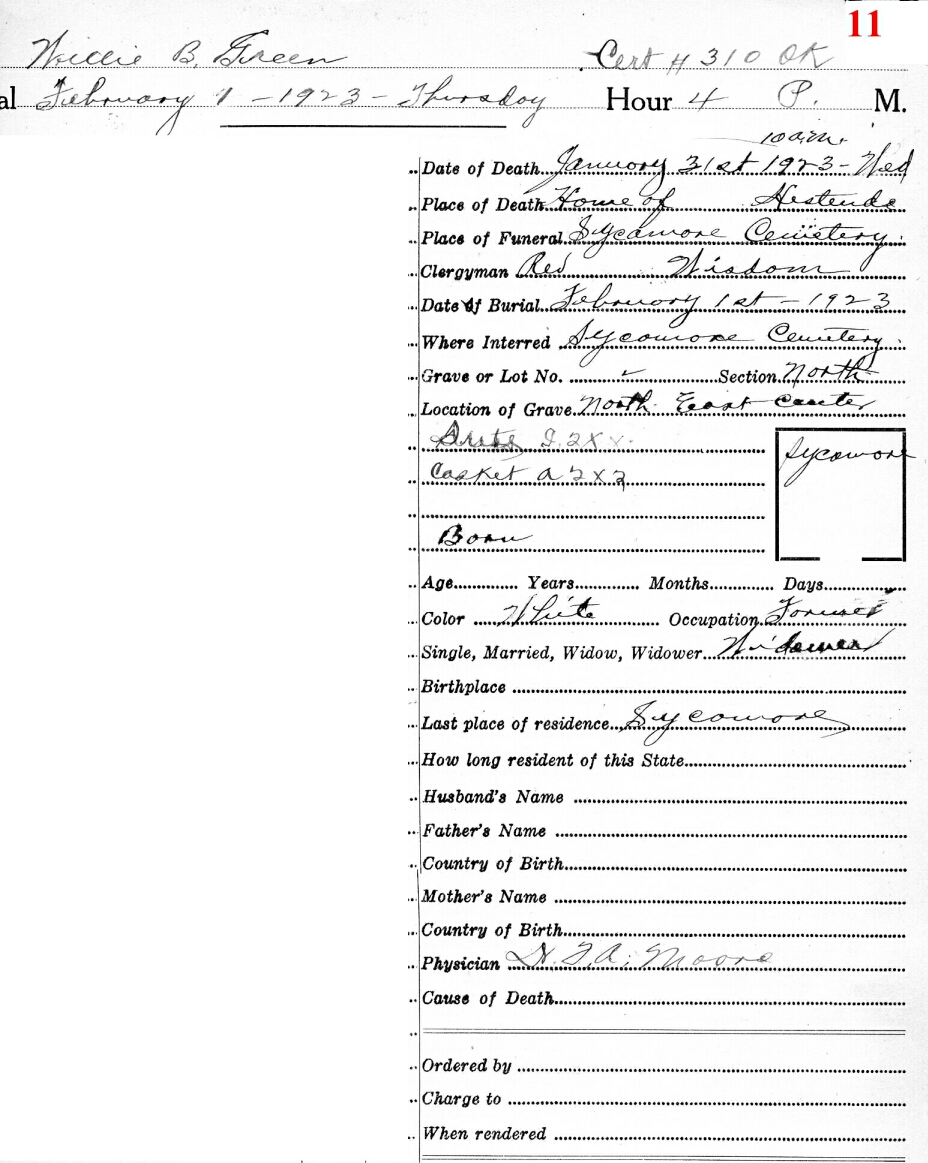 11
Willie B. Green Cert # 310 OK
al February 1 - 1923 - Thursday Hour 4 P. M.
10 a.m.
Date of Death January 31st 1923 - Wed
Place of Death Home of
Place of Funeral Sycamore Cemetery.
Clergyman Rev Wisdom
Date of Burial February 1st - 1923
Where Interred Sycamore Cemetery.
Grave or Lot No. ✓ Section North
Location of Grave North East Center
2 X X
Casket a 2 x 3
Sycamore
Born
Age Years Months Days
Color White Occupation Farmer
Single, Married, Widow, Widower Widower
Birthplace
Last place of residence Sycamore
How long resident of this State
Husband's Name
Father's Name
Country of Birth
Mother's Name
Country of Birth
Physician Moore
Cause of Death
Ordered by
Charge to
When rendered